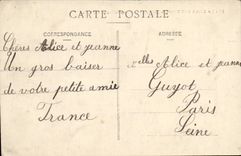 CARTE POSTALE
CORRESPONDANCE
Chères Alice et jeanne
Un gros baiser
de votre petite amie
France
ADRESSE
Melles Alice et jeanne
Guyot
Paris
Seine